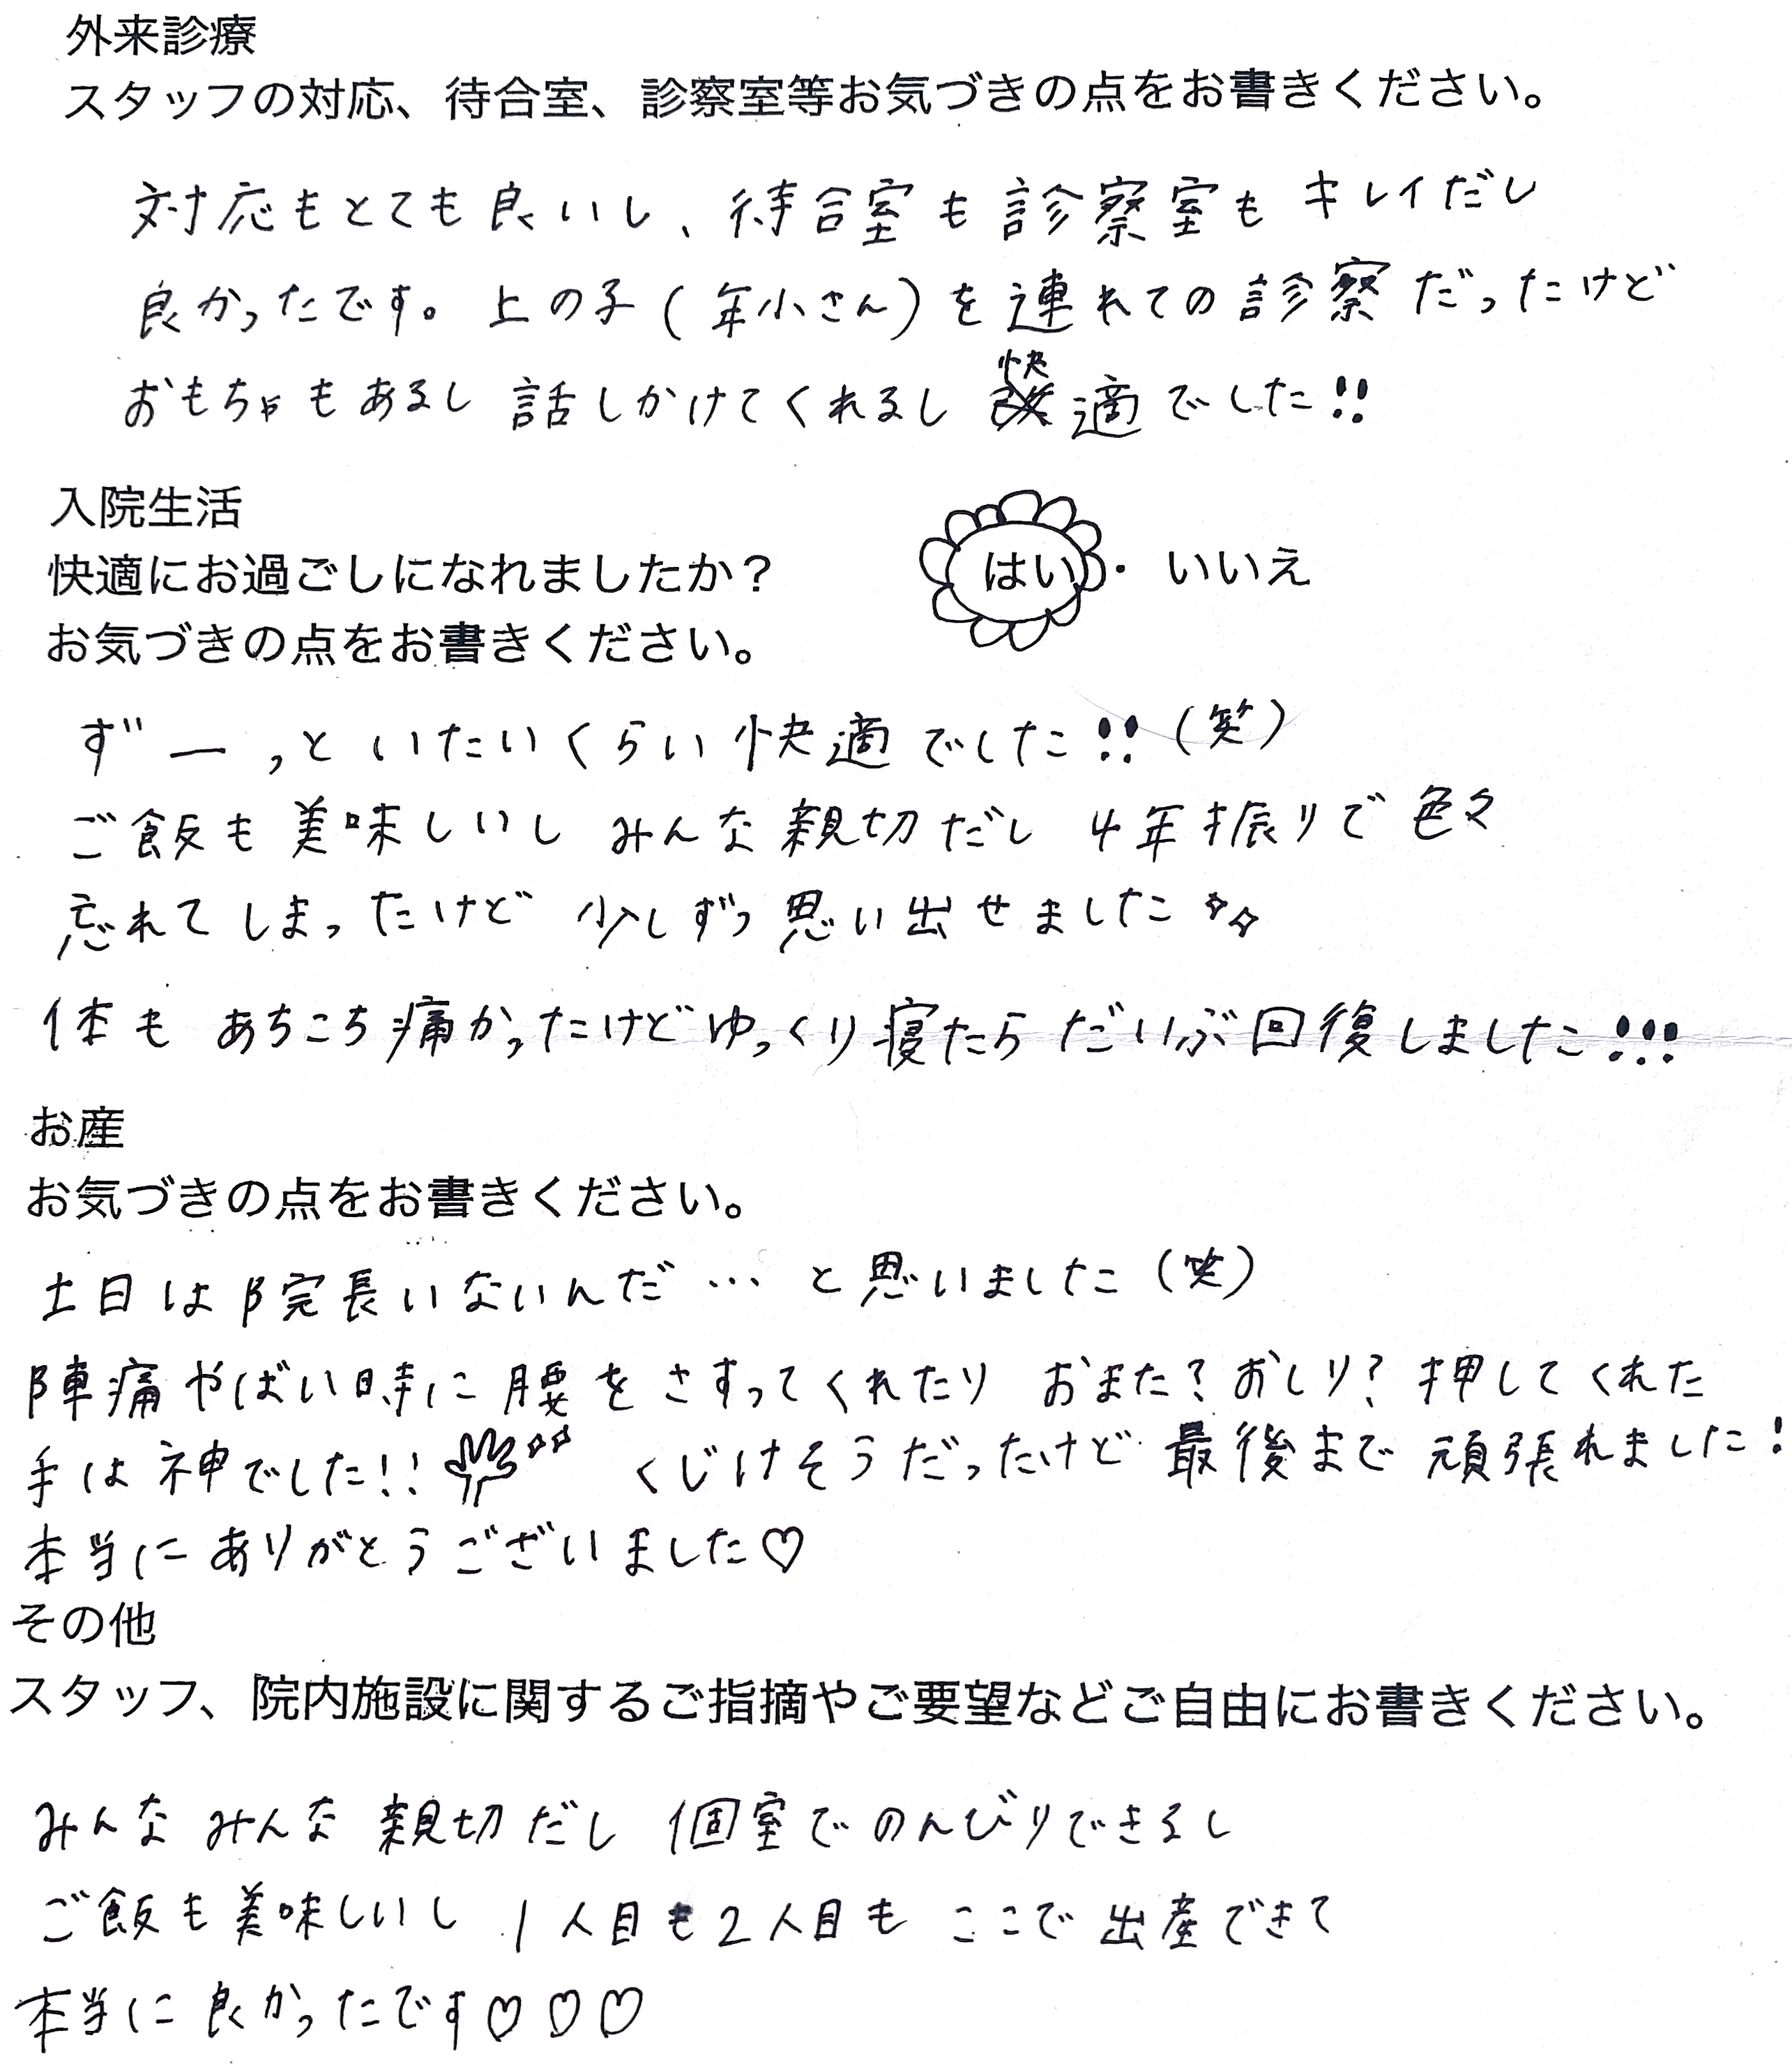 外来診療
スタッフの対応、待合室、診察室等お気づきの点をお書きください。
対応もとても良いし、待合室も診察室もキレイだし
良かったです。上の子(年小さん)を連れての診察だったけど
おもちゃもあるし話しかけてくれるし快適でした!!
入院生活
快適にお過ごしになれましたか? はい・いいえ
お気づきの点をお書きください。
ずーっといたいくらい快適でした!!(笑)
ご飯も美味しいしみんな親切だし4年振りで色々
忘れてしまったけど少しずつ思い出せました
体もあちこち痛かったけどゆっくり寝たらだいぶ回復しました!!!
お産
お気づきの点をお書きください。
土日は院長いないんだ…と思いました(笑)
陣痛やばい時に腰をさすってくれたりおまた?おしり?押してくれた
手は神でした!! くじけそうだったけど最後まで頑張れました!
本当にありがとうございました♡
その他
スタッフ、院内施設に関するご指摘やご要望などご自由にお書きください。
みんなみんな親切だし個室でのんびりできるし
ご飯も美味しいし1人目も2人目もここで出産できて
本当に良かったです♡♡♡